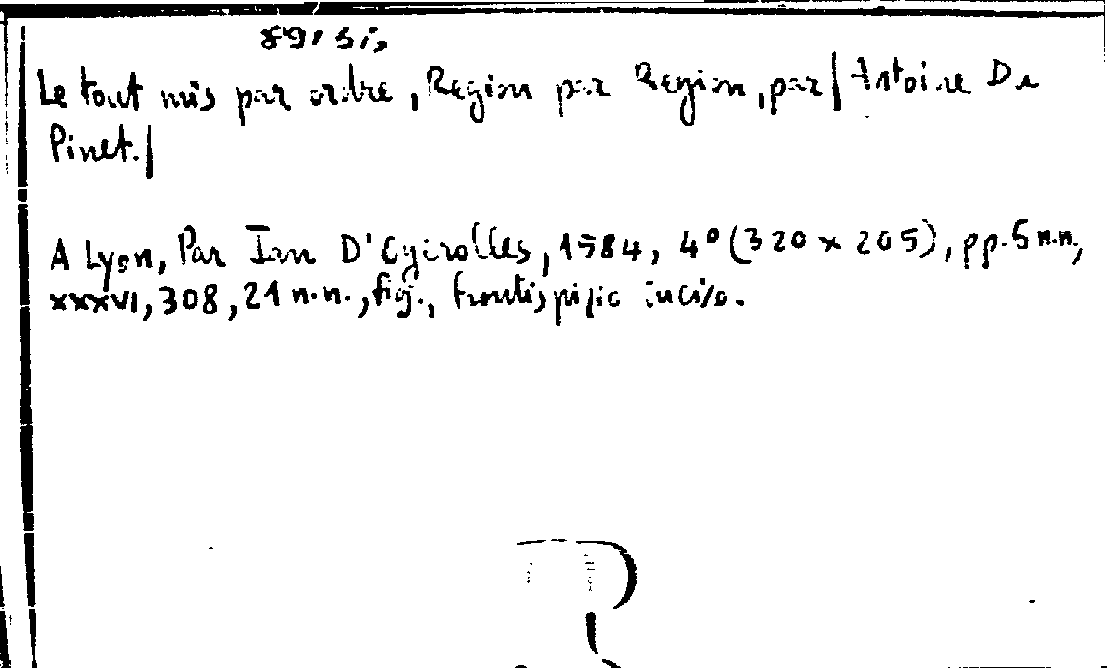 Le tout mis par ordre, Region par Region, par| Antoine Du
Pinet.|
A Lyon, Par Ian D'Ogerolles, 1564, 4° (320 x 205), pp. 6 n.n.,
xxxvi, 308, 21 n.n., fig., frontispizio inciso.